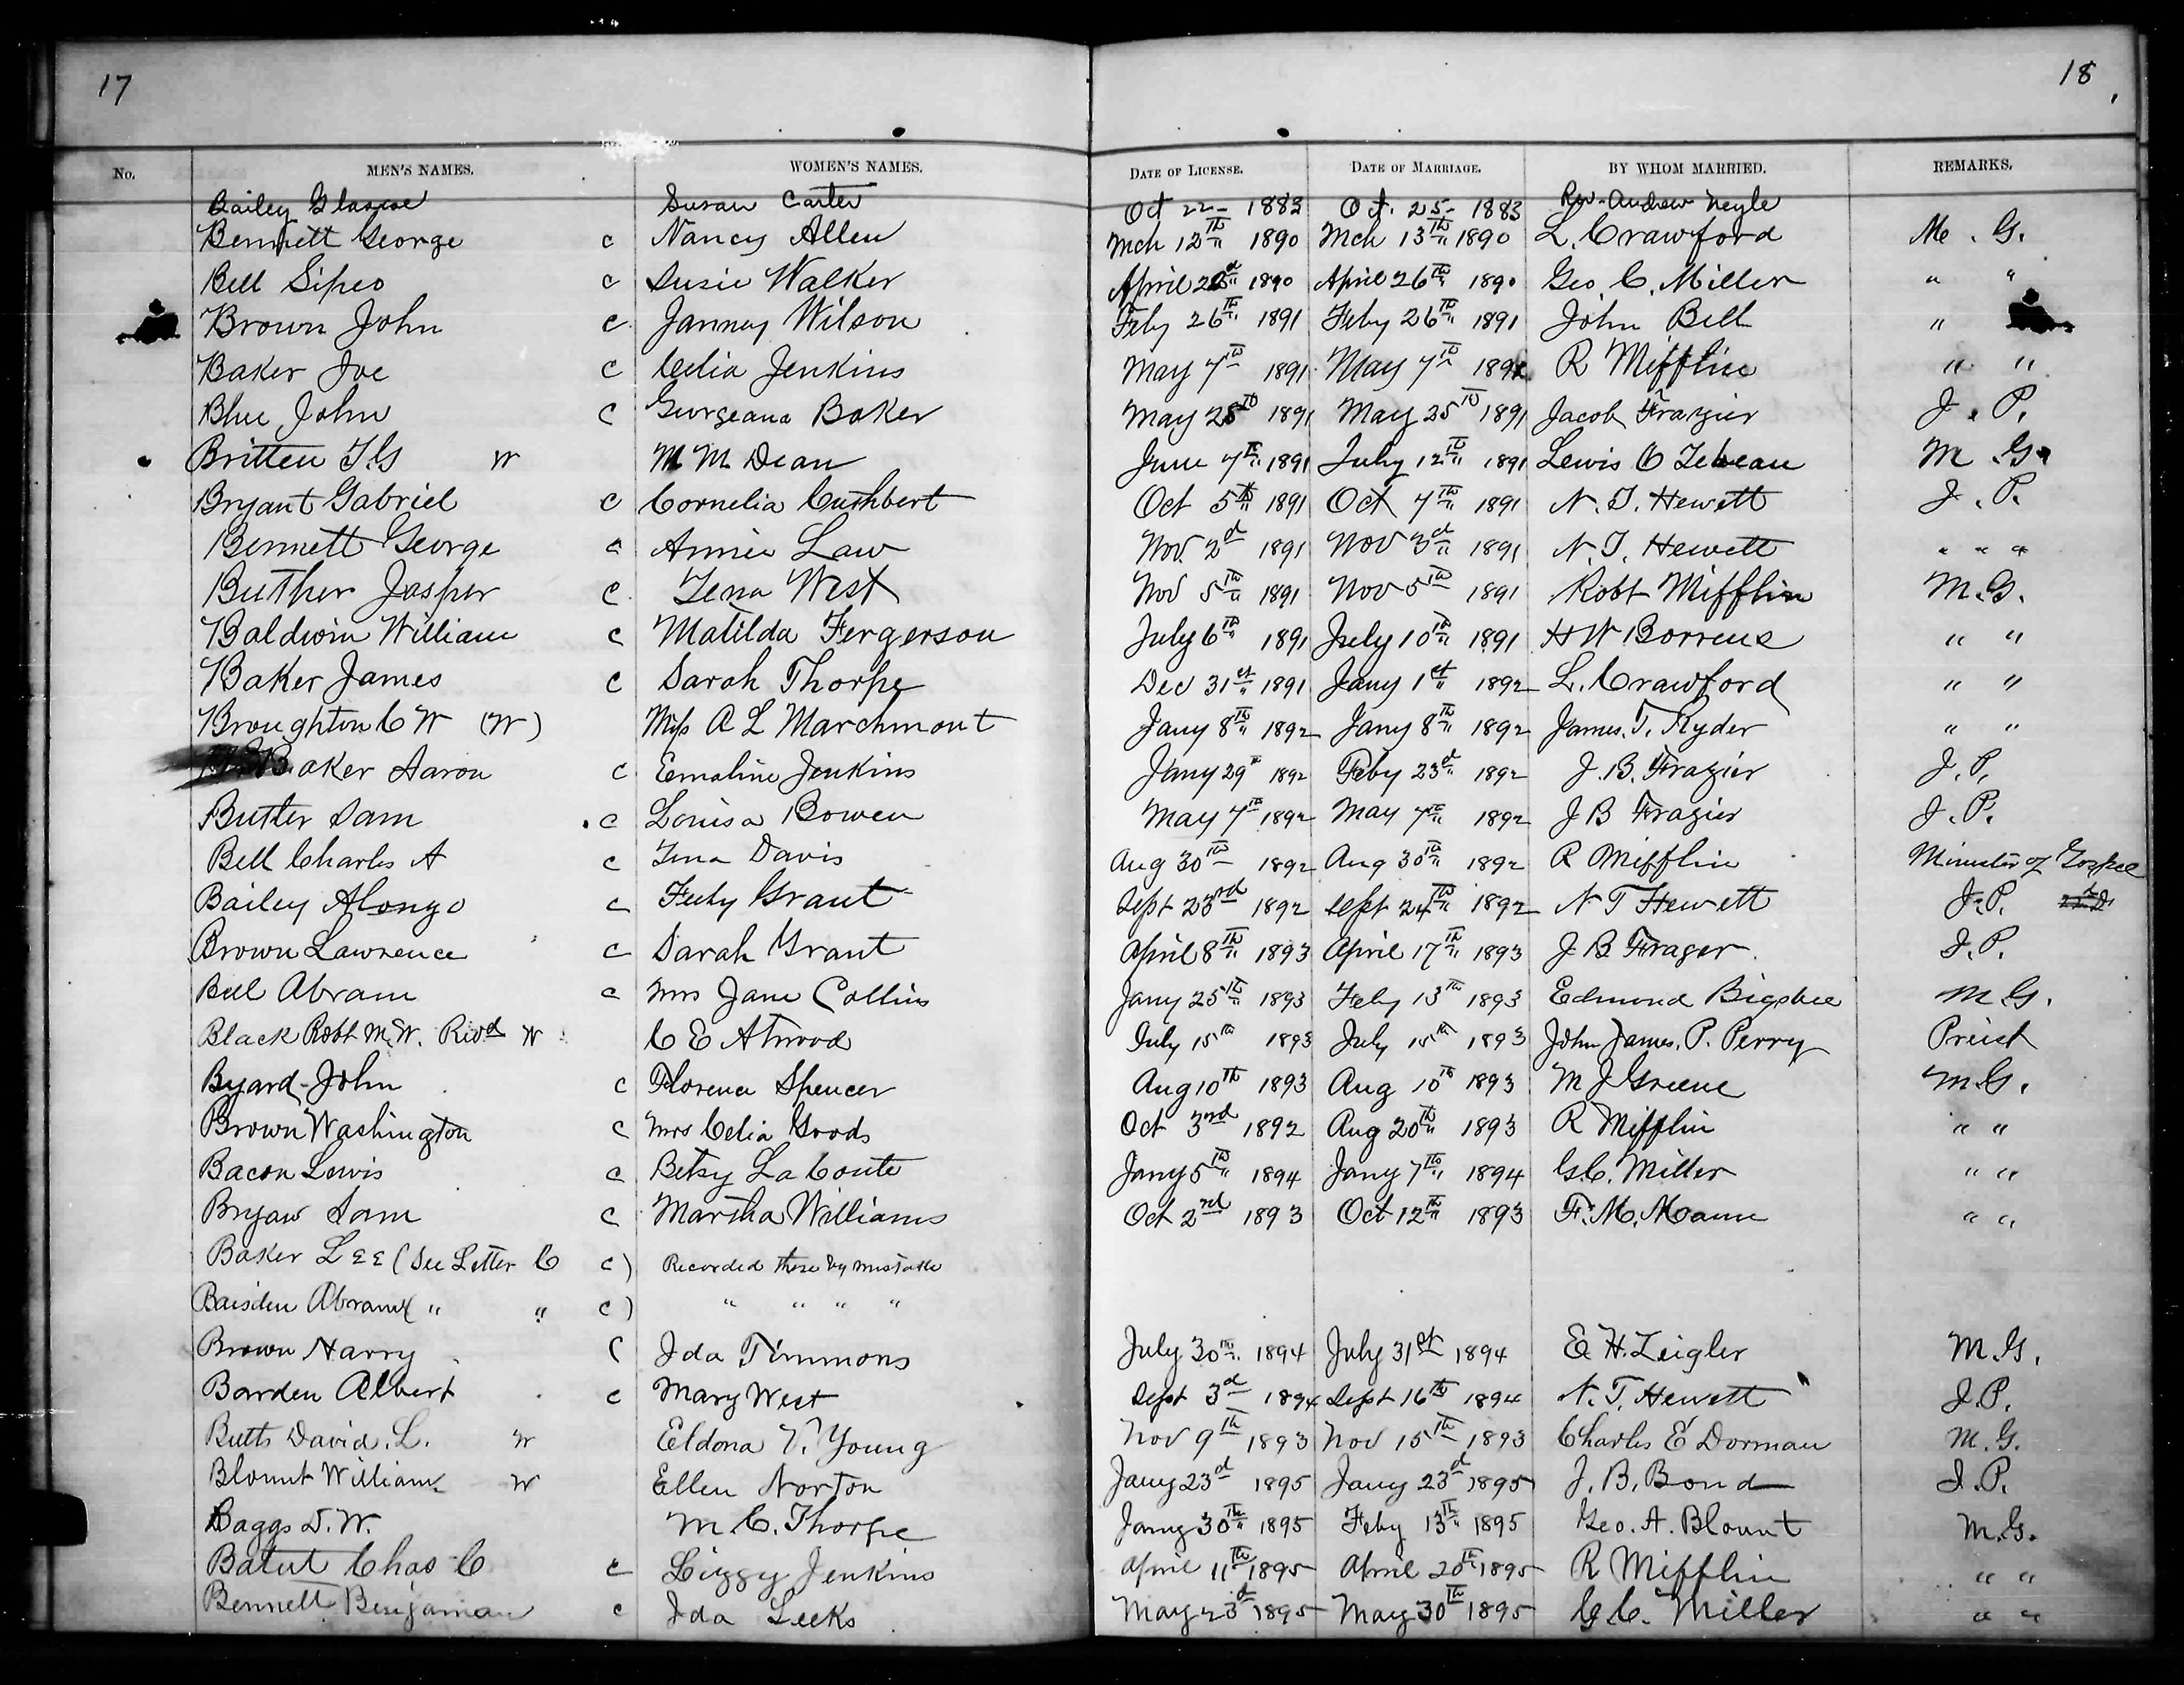 17
18
No. MEN'S NAMES. WOMEN'S NAMES. DATE OF LICENSE. DATE OF MARRIAGE. BY WHOM MARRIED. REMARKS.
Bailey Glascoe Susan Carter Oct 22 - 1883 Oct. 25 - 1883 Rev. Andrew Neyle
Bennett George c Nancy Allen Mch 12th 1890 Mch 13th 1890 L. Crawford M. G.
Bell Sipeo c Susie Walker April 1890 April 26th 1890 Geo. C. Miller " "
Brown John c. Janney Wilson Feby 26th 1891 Feby 26th 1891 John Bell "
Baker Joe c Celia Jenkins May 7th 1891 May 7th 1891 R Mifflin " "
Blue John c Georgeana Baker May 25th 1891 May 25th 1891 Jacob Frazier J. P.
Britten T.G W M M Dean June 7th 1891 July 12th 1891 Lewis C Tebeau M. G.
Bryant Gabriel c Cornelia Cuthbert Oct 5th 1891 Oct 7th 1891 N. T. Hewett J. P.
Bennett George c Annie Law Nov. 2d 1891 Nov 3d 1891 N. T. Hewett " " "
Buther Jasper c. Tena West Nov 5th 1891 Nov 5th 1891 Robt Mifflin M. G.
Baldwin William c Matilda Fergerson July 6th 1891 July 10th 1891 H W Borrens " "
Baker James c Sarah Thorpe Dec 31st 1891 Jany 1st 1892 L. Crawford " "
Broughton C W (W) Miss A L Marchmont Jany 8th 1892 Jany 8th 1892 James. T. Ryder " "
Baker Aaron c Eemaline Jenkins Jany 29th 1892 Feby 23d 1892 J. B. Frazier J. P.
Butler Sam . c Louisa Bowen May 7th 1892 May 7th 1892 J B Frazier J. P.
Bell Charles A c Tena Davis Aug 30th 1892 Aug 30th 1892 R Mifflin Minister of Gospel
Bailey Alonzo c Grant Sept 23rd 1892 Sept 24th 1892 N T Hewett J. P.
Brown Lawrence c Sarah Grant April 8th 1893 April 17th 1893 J B Frager. J. P.
Bell Abram c Mrs Jane Collins Jany 25th 1893 Feby 13th 1893 Edmond Bigsbee M G.
Black Robt M. W. Rivd W C E Atwood July 15th 1893 July 15th 1893 John James. P. Perry Preist
Byard - John c Florence Spencer Aug 10th 1893 Aug 10th 1893 M J Greene M. G.
Brown Washington c Mrs Celia Goods Oct 3rd 1892 Aug 20th 1893 R Mifflin " "
Bacon Lewis c Betsy La Conte Jany 5th 1894 Jany 7th 1894 G. C. Miller " "
Bryaw Sam c Martha Williams Oct 2nd 1893 Oct 12th 1893 F. M. Mann " "
Baker Lee (See Letter C c) Recorded these by mistake
Baisden Abram ( " " c) " " " "
Brown Harry c Ida Timmons July 30th 1894 July 31st 1894 E. H. Zeigler M. G.
Barden Albert c Mary West Sept 3d 1894 Sept 16th 1894 N. T. Hewett J. P.
Butts David. L. W Eldona V. Young Nov 9th 1893 Nov 15th 1893 Charles E Dorman M. G.
Blount William W Ellen Norton Jany 23d 1895 Jany 23d 1895 J. B. Bond J. P.
Baggs D. W. M. C. Thorpe Jany 30th 1895 Feby 13th 1895 Geo. A. Blount M. G.
Batut Chas C c Lizzy Jenkins April 11th 1895 April 20th 1895 R Mifflin " "
Bennett Benjaman c Ida Leeks May 23d 1895 May 30th 1895 C. Miller " "